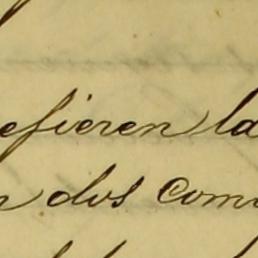 efieren la
n dos com